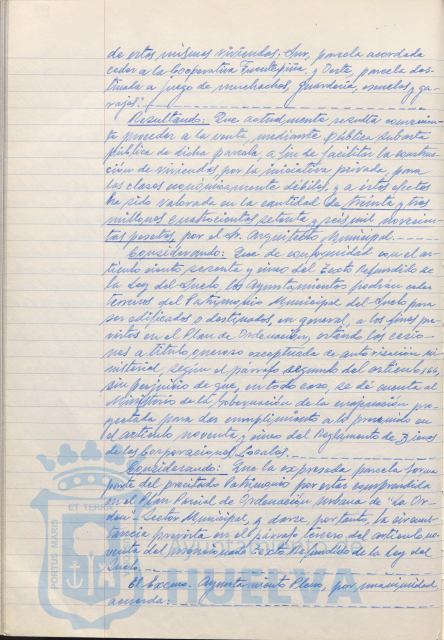 de estas mismas viviendas. Sur, parcela acordada
ceder a la Cooperativa Fuentepiña, y Oeste, parcela des-
tinada a juego de muchachos, guardería, escuelas y ga-
rajes.
Resultando: Que actualmente resulta convenien-
te proceder a la venta, mediante pública subasta
pública de dicha parcela, a fin de facilitar la construc-
ción de viviendas por la iniciativa privada para
las clases económicamente débiles, y a estos efectos
ha sido valorada en la cantidad de treinta y tres
millones cuatrocientas setenta y seis mil novecien-
tas pesetas, por el Sr. Arquitecto Municipal.
Considerando: Que de conformidad con el ar-
tículo ciento sesenta y cinco del Texto Refundido de
la Ley del Suelo, los Ayuntamientos podrán ceder
terrenos del Patrimonio Municipal del Suelo para
ser edificados o destinados, en general, a los fines pre-
vistos en el Plan de Ordenación, estando las cesio-
nes a título oneroso exceptuadas de autorización mi-
nisterial, según el párrafo segundo del artículo 166,
sin perjuicio de que, en todo caso, se dé cuenta al
Ministerio de la Gobernación de la enajenación pro-
yectada para dar cumplimiento a lo prevenido en
el artículo noventa y cinco del Reglamento de Bienes
de las Corporaciones Locales.
Considerando: Que la expresada parcela forma
parte del precitado Patrimonio por estar comprendida
en el Plan Parcial de Ordenación urbana de "La Or-
den" Sector Municipal, y darse, por tanto, la circuns-
tancia prevista en el párrafo tercero del artículo no-
venta del mencionado Texto Refundido de la Ley del
Suelo.
El Excmo. Ayuntamiento Pleno, por unanimidad,
acuerda:
PORTUS MARIS
ET TERRAE
HUELVA